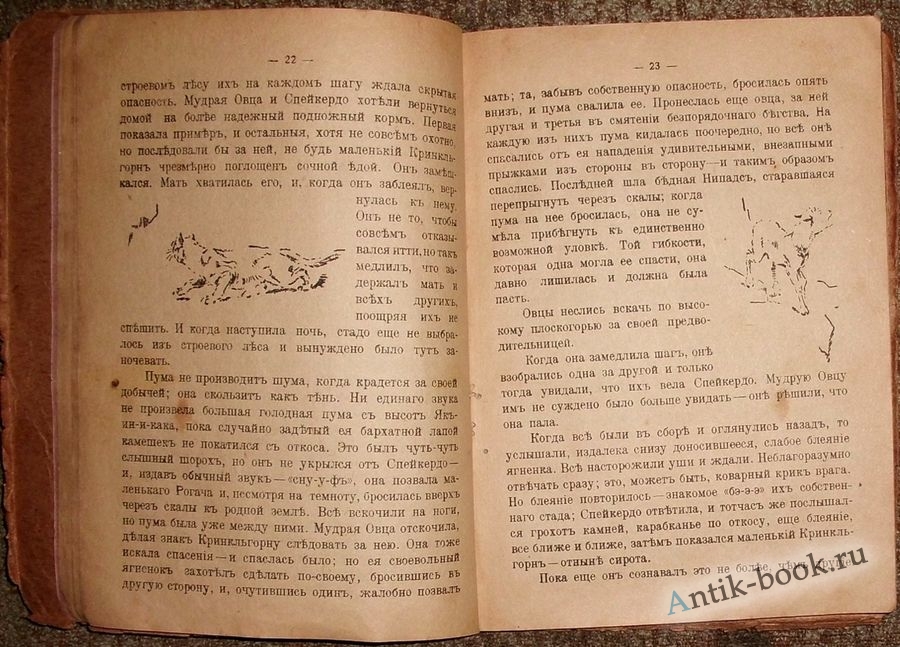 — 22 —
строевомъ лѣсу ихъ на каждомъ шагу ждала скрытая
опасность. Мудрая Овца и Спейкердо хотѣли вернуться
домой на болѣе надежный подножный кормъ. Первая
показала примѣръ, и остальныя, хотя не совсѣмъ охотно,
но послѣдовали бы за ней, не будь маленькій Кринкль-
горнъ чрезмѣрно поглощенъ сочной ѣдой. Онъ замѣш-
кался. Мать хватилась его, и, когда онъ заблеялъ, вер-
нулась къ нему.
Онъ не то, чтобы
совсѣмъ отказы-
вался итти, но такъ
медлилъ, что за-
держалъ мать и
всѣхъ другихъ,
поощряя ихъ не
спѣшить. И когда наступила ночь, стадо еще не выбра-
лось изъ строевого лѣса и вынуждено было тутъ за-
ночевать.
Пума не производитъ шума, когда крадется за своей
добычей; она скользитъ какъ тѣнь. Ни единаго звука
не произвела большая голодная пума съ высотъ Якъ-
ин-и-кака, пока случайно задѣтый ея бархатной лапой
камешекъ не покатился съ откоса. Это былъ чуть-чуть
слышный шорохъ, но онъ не укрылся отъ Спейкердо—
и, издавъ обычный звукъ—«сну-у-фъ», она позвала
маленькаго Рогача и, несмотря на темноту, бросилась вверхъ
черезъ скалы къ родной землѣ. Всѣ вскочили на ноги,
но пума была уже между ними. Мудрая Овца отскочила,
дѣлая знакъ Кринкльгорну слѣдовать за нею. Она тоже
искала спасенія—и спаслась было; но ея своевольный
ягненокъ захотѣлъ сдѣлать по-своему, бросившись въ
другую сторону, и, очутившись одинъ, жалобно позвалъ
— 23 —
мать; та, забывъ собственную опасность, бросилась опять
внизъ, и пума свалила ее. Пронеслась еще овца, за ней
другая и третья въ смятеніи безпорядочнаго бѣгства. На
каждую изъ нихъ пума кидалась поочередно, но всѣ онѣ
спасались отъ ея нападенія удивительными, внезапными
прыжками изъ стороны въ сторону—и такимъ образомъ
спаслись. Послѣдней шла бѣдная Нипадсъ, старавшаяся
перепрыгнуть черезъ скалы; когда
пума на нее бросилась, она не су-
мѣла прибѣгнуть къ единственно
возможной уловкѣ. Той гибкости,
которая одна могла ее спасти, она
давно лишилась и должна была
пасть.
Овцы неслись вскачь по высо-
кому плоскогорью за своей предво-
дительницей.
Когда она замедлила шагъ, онѣ
взобрались одна за другой и только
тогда увидали, что ихъ вела Спейкердо. Мудрую Овцу
имъ не суждено было больше увидать—онѣ рѣшили, что
она пала.
Когда всѣ были въ сборѣ и оглянулись назадъ, то
услышали, издалека снизу доносившееся, слабое блеяніе
ягненка. Всѣ насторожили уши и ждали. Неблагоразумно
отвѣчать сразу; это, можетъ быть, коварный крикъ врага.
Но блеяніе повторилось—знакомое «бэ-э-э» ихъ собствен-
наго стада; Спейкердо отвѣтила, и тотчасъ же послышал-
ся грохотъ камней, карабканье по откосу, еще блеяніе,
все ближе и ближе, затѣмъ показался маленькій Кринкль-
горнъ—отнынѣ сирота.
Пока еще онъ сознавалъ это не болѣе, чѣмъ другіе
Antik-book.ru